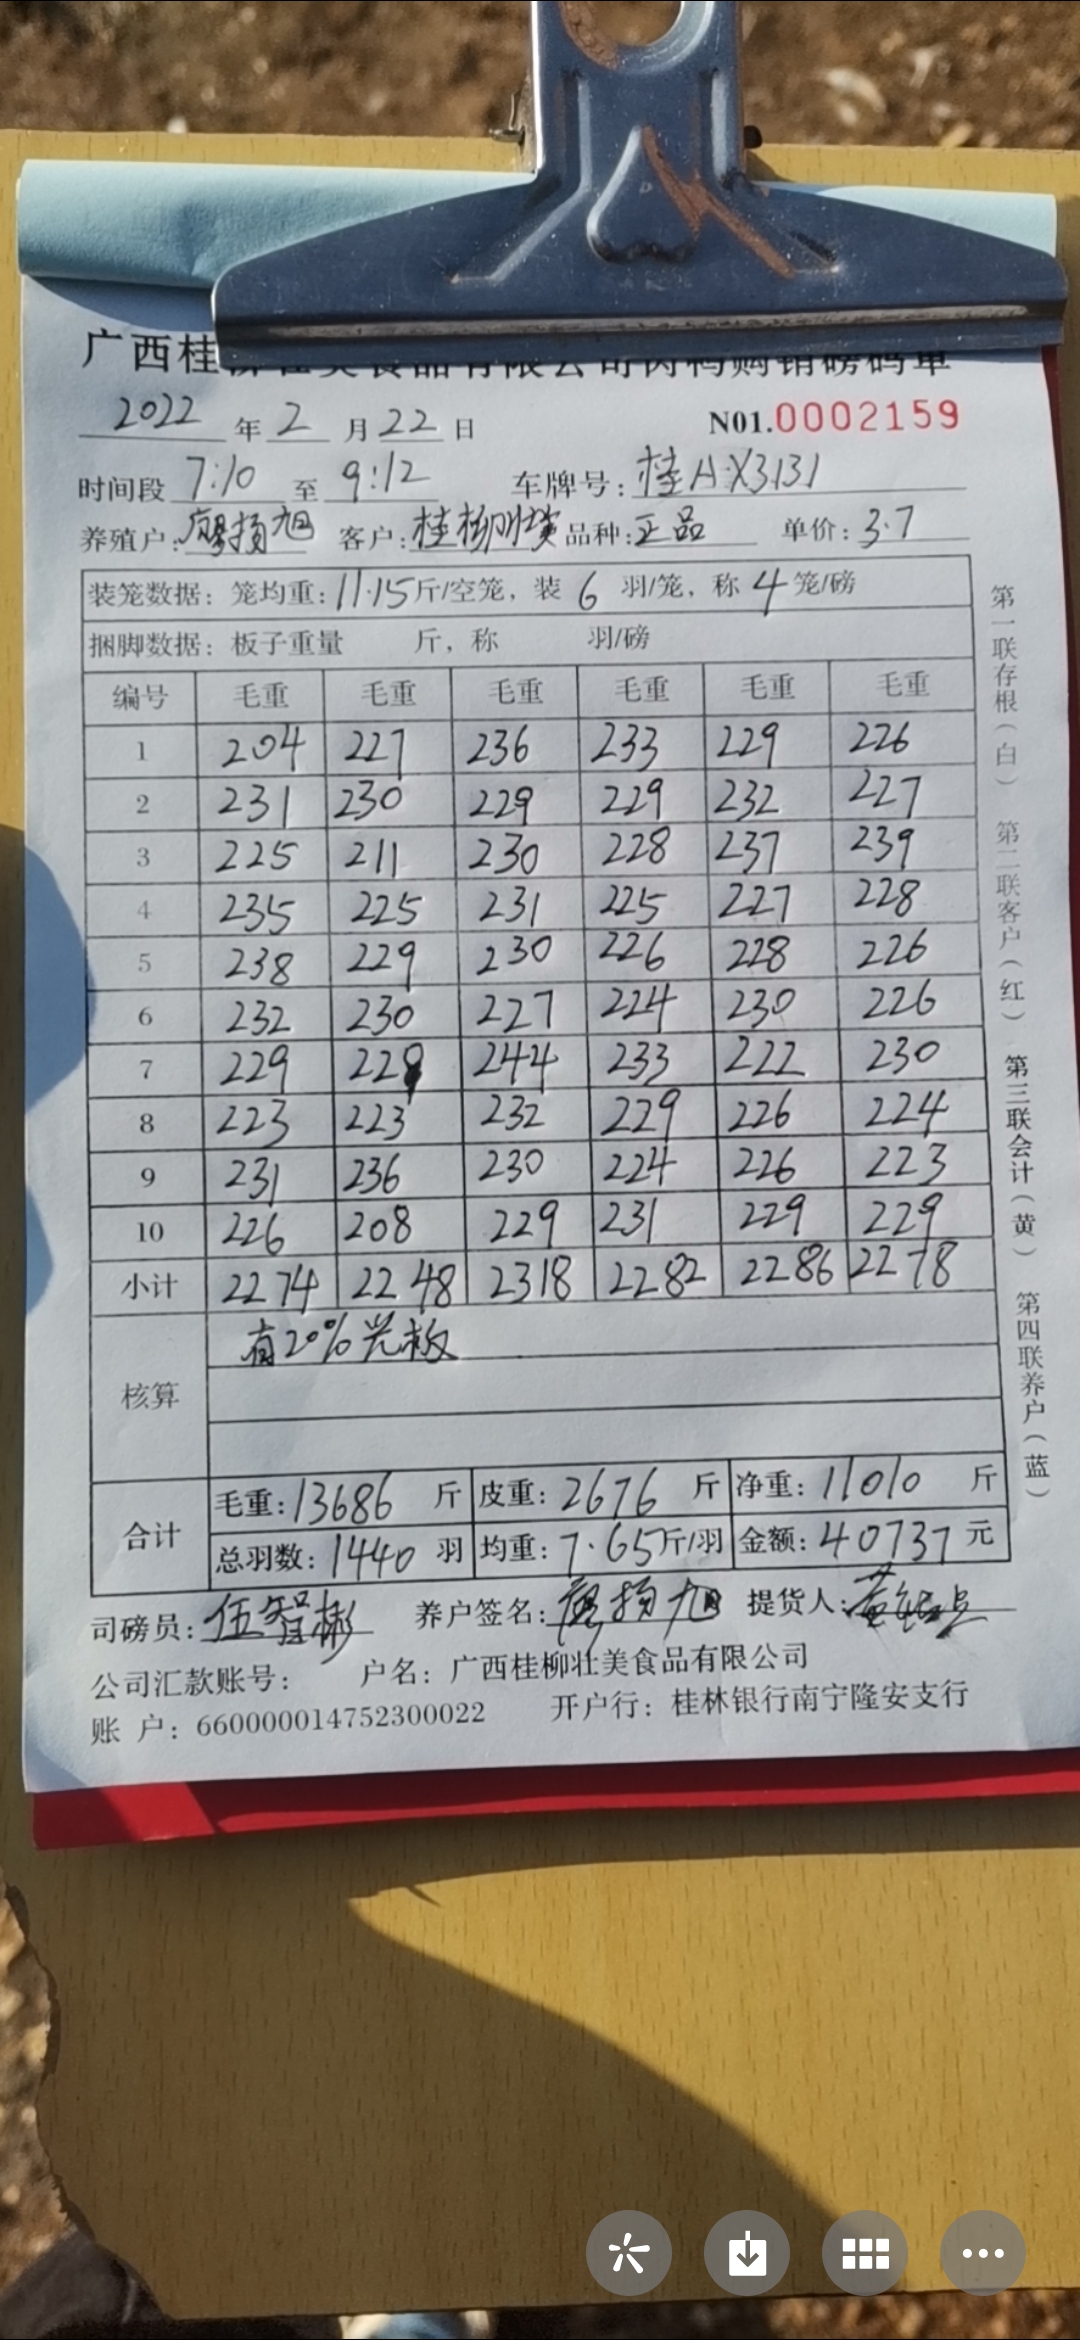 广西桂柳壮美食品有限公司肉鸭购销磅码单
2022 年 2 月 22 日 N01.0002159
时间段 7:10 至 9:12 车牌号: 桂A·X3131
养殖户: 廖扬旭 客户: 桂柳壮美 品种: 正品 单价: 3.7
装笼数据: 笼均重: 11.15 斤/空笼, 装 6 羽/笼, 称 4 笼/磅
捆脚数据: 板子重量 斤, 称 羽/磅
编号 毛重 毛重 毛重 毛重 毛重 毛重
1 204 227 236 233 229 226
2 231 230 229 229 232 227
3 225 211 230 228 237 239
4 235 225 231 225 227 228
5 238 229 230 226 228 226
6 232 230 227 224 230 226
7 229 229 244 233 222 230
8 223 223 232 229 226 224
9 231 236 230 224 226 223
10 226 208 229 231 229 229
小计 2274 2248 2318 2282 2286 2278
核算 有20%
合计 毛重: 13686 斤 皮重: 2676 斤 净重: 11010 斤
总羽数: 1440 羽 均重: 7.65 斤/羽 金额: 40737 元
司磅员: 伍智彬 养户签名: 廖扬旭 提货人: 黄
公司汇款账号: 户名: 广西桂柳壮美食品有限公司
账 户: 660000014752300022 开户行: 桂林银行南宁隆安支行
第一联存根(白) 第二联客户(红) 第三联会计(黄) 第四联养户(蓝)